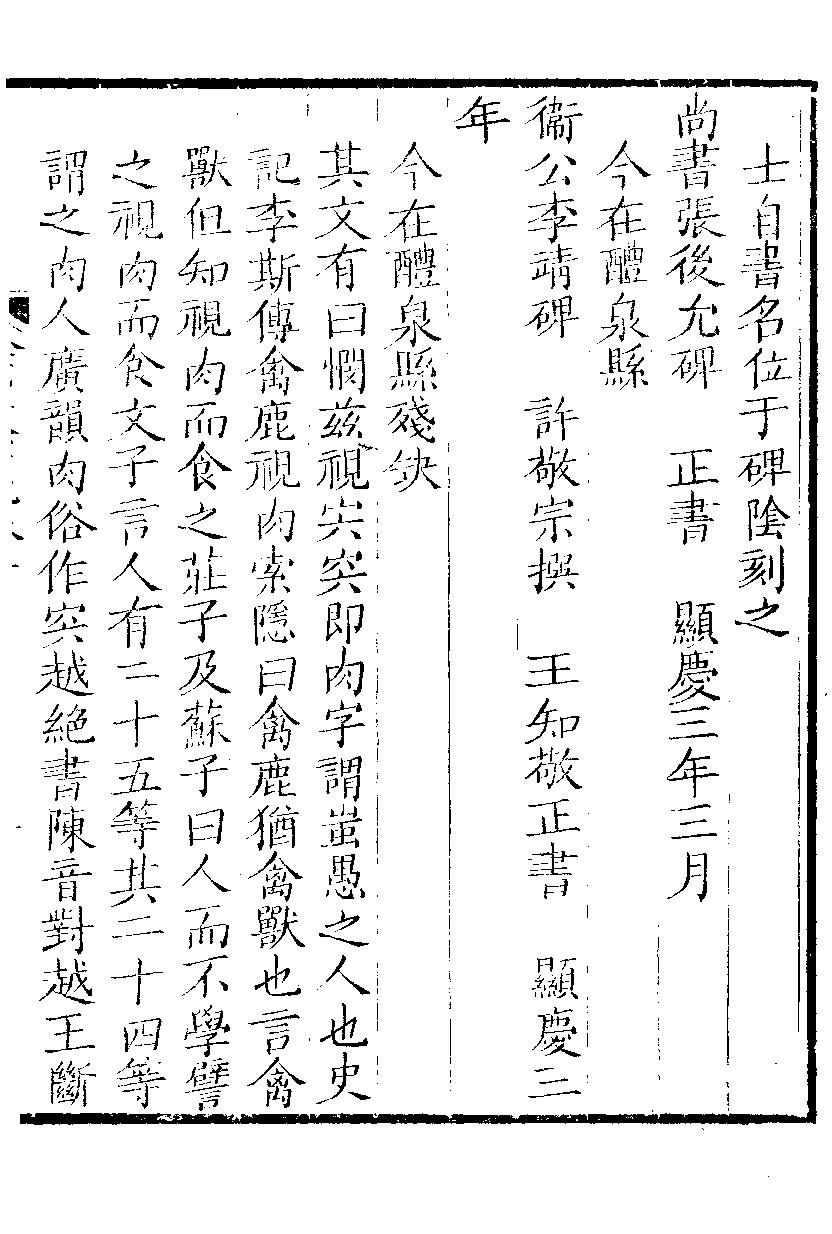 士自書名位于碑陰刻之
尚書張後允碑　正書　顯慶三年三月
今在醴泉縣
衞公李靖碑　許敬宗撰　王知敬正書　顯慶三
年
今在醴泉縣殘缺
其文有曰憫兹視宍宍即肉字謂蚩愚之人也史
記李斯傳禽鹿視肉索隱曰禽鹿猶禽獸也言禽
獸但知視肉而食之莊子及蘇子曰人而不學譬
之視肉而食文子言人有二十五等其二十四等
謂之肉人廣韻肉俗作宍越絶書陳音對越王斷